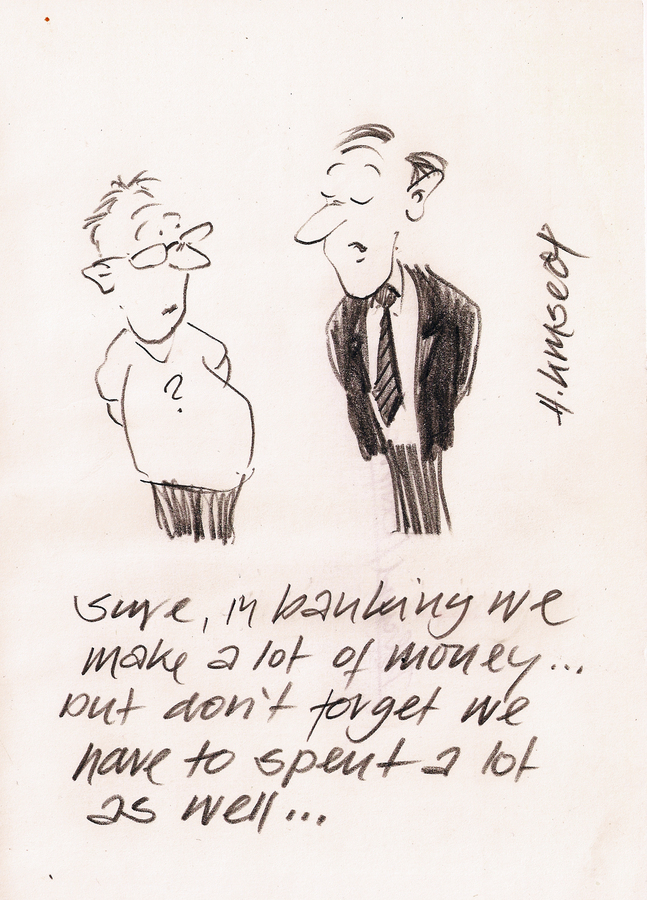 ?
H. Umseoy
Sure, in banking we
make a lot of money...
but don't forget we
have to spent a lot
as well...